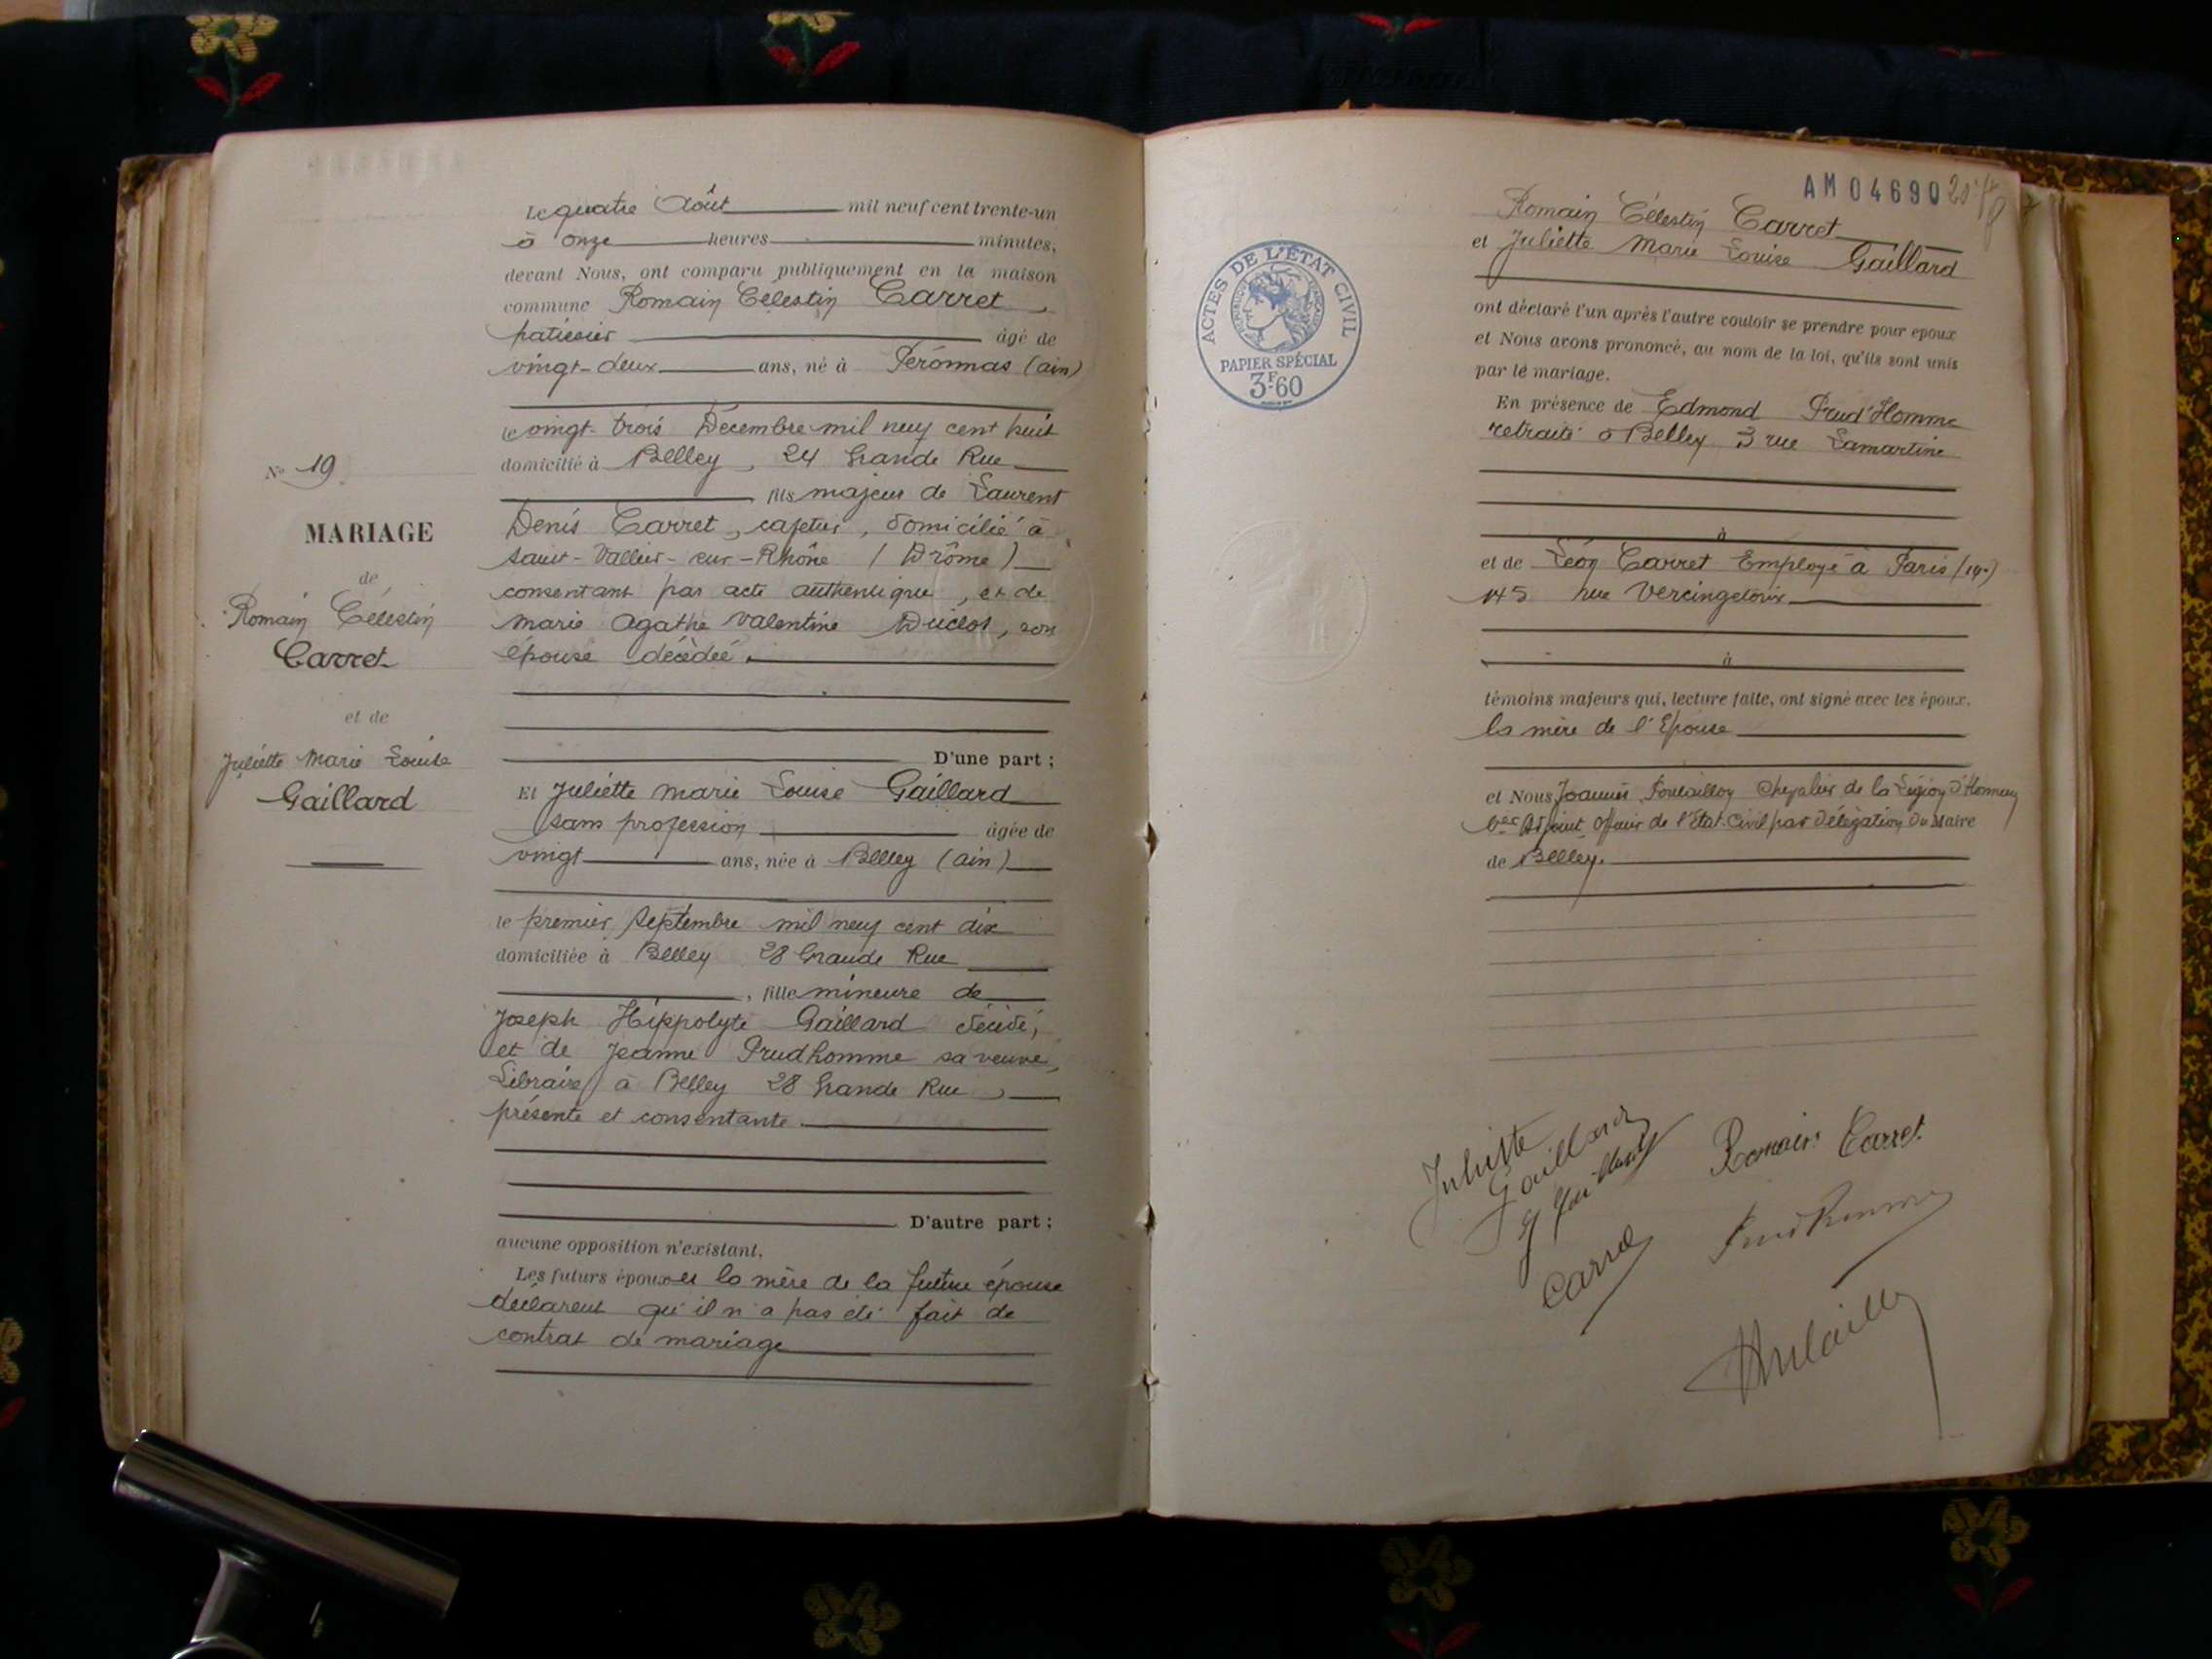 N° 19
MARIAGE
de
Romain Célestin
Carret
et de
Juliette Marie Louise
Gaillard
Le quatre Août mil neuf cent trente-un
à onze heures minutes,
devant Nous, ont comparu publiquement en la maison
commune Romain Célestin Carret
patissier âgé de
vingt-deux ans, né à Péronnas (ain)
le vingt-trois Décembre mil neuf cent huit
domicilié à Belley, 24 Grande Rue
fils majeur de Laurent
Denis Carret, cafetier, domicilié à
Saint-Vallier-sur-Rhône (Drôme)
consentant par acte authentique, et de
Marie Agathe Valentine Duclos, son
épouse décédée.
D'une part ;
Et Juliette Marie Louise Gaillard
sans profession âgée de
vingt ans, née à Belley (ain)
le premier Septembre mil neuf cent dix
domiciliée à Belley 28 Grande Rue
, fille mineure de
Joseph Hippolyte Gaillard décédé,
et de Jeanne Prudhomme sa veuve,
Libraire à Belley 28 Grande Rue,
présente et consentante.
D'autre part ;
aucune opposition n'existant,
Les futurs époux et la mère de la future épouse
déclarent qu'il n'a pas été fait de
contrat de mariage
AM 04690
ACTES DE L'ÉTAT CIVIL
PAPIER SPÉCIAL
3F60
Romain Célestin Carret
et Juliette Marie Louise Gaillard
ont déclaré l'un après l'autre vouloir se prendre pour époux
et Nous avons prononcé, au nom de la loi, qu'ils sont unis
par le mariage.
En présence de Edmond Prud'Homme
retraité à Belley 3 rue Lamartine
à
et de Léon Carret Employé à Paris (14e)
145 rue Vercingétorix
à
témoins majeurs qui, lecture faite, ont signé avec les époux.
la mère de l'Epouse
et Nous Joannès Chevalier de la Légion d'Honneur
1er Adjoint Officier de l'Etat-Civil par Délégation du Maire
de Belley.
Juliette
Gaillard
J Gaillard
Romain Carret
Carret
Prudhomme